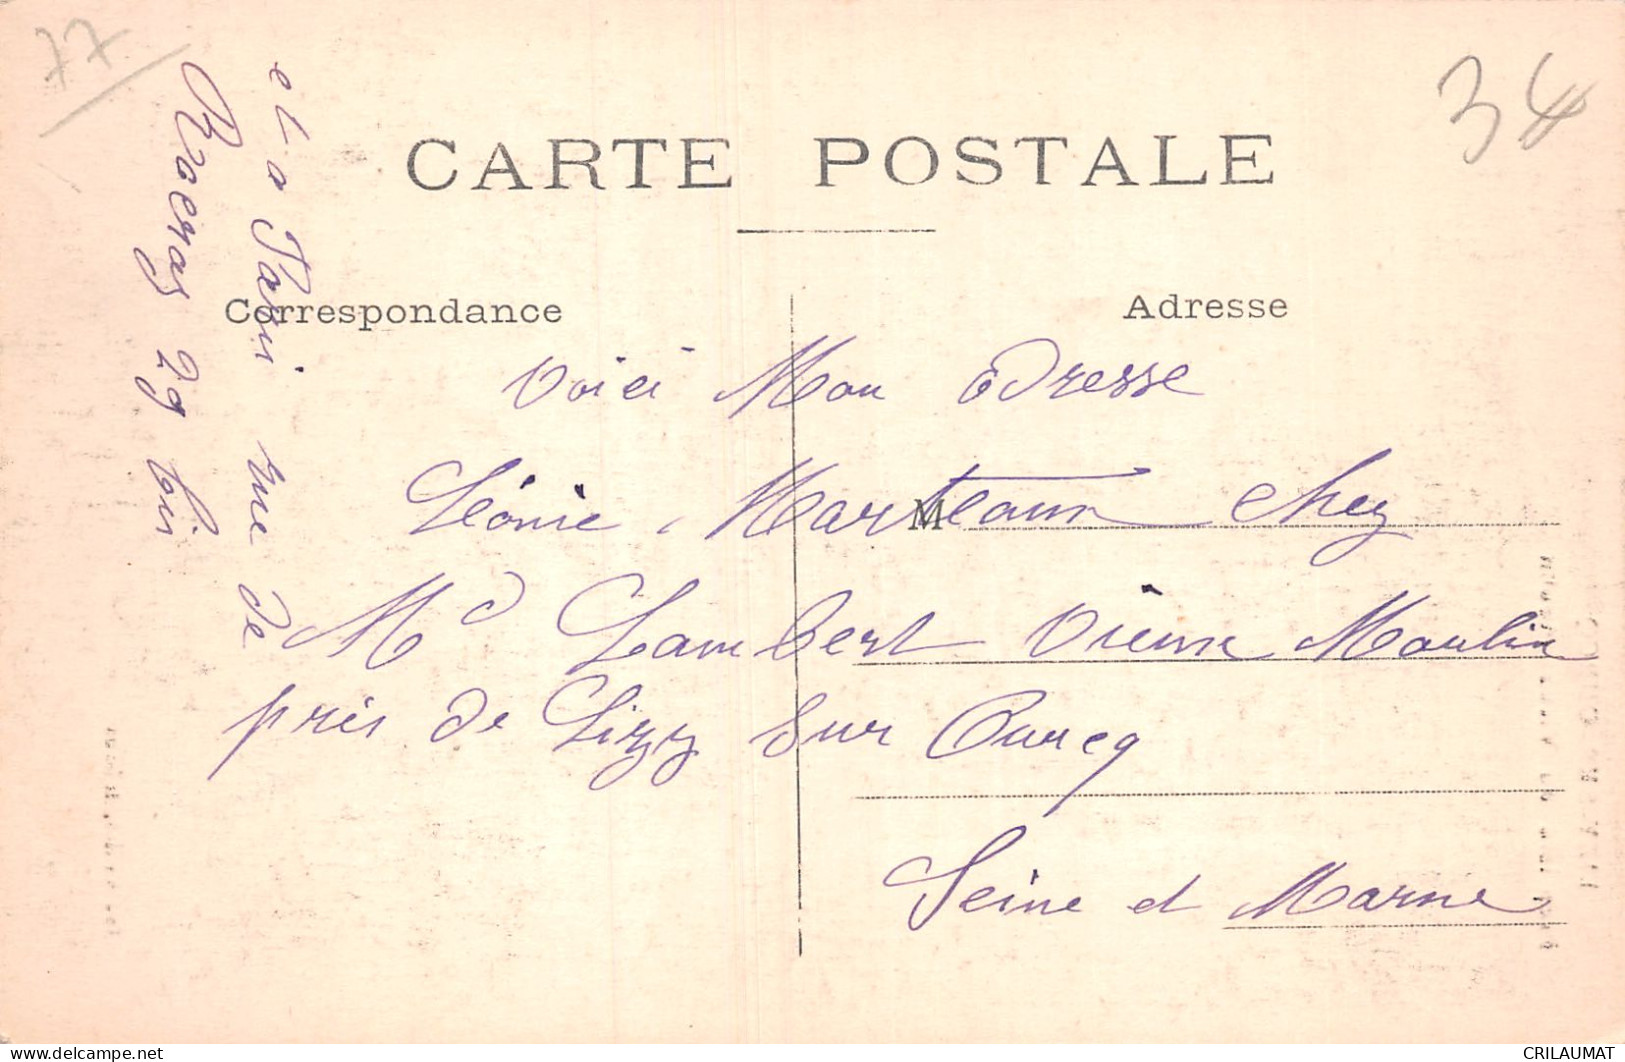 77
34
CARTE POSTALE
Correspondance
Adresse
Voici Mon adresse
Léonie Marteaux chez
M
Md Lambert Vieux Moulin
près de Lizy sur Ourcq
Seine et Marne
et a Paris rue de
Rocroy 29 bis
CRILAUMAT